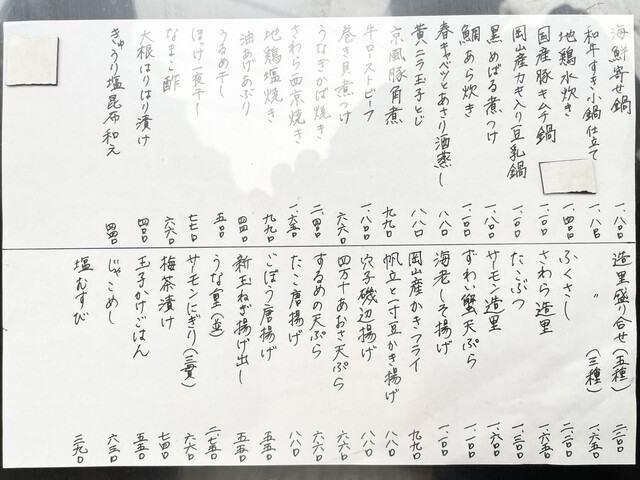 海鮮寄せ鍋 一、八〇〇
和牛すき小鍋仕立て 一、八〇〇
地鶏水炊き 一、四〇〇
国産豚キムチ鍋 一、一〇〇
岡山産カキ入り豆乳鍋 一、一〇〇
黒めばる煮つけ 一、八〇〇
鯛あら炊き 一、一〇〇
春キャベツとあさり酒蒸し 八八〇
黄ニラ玉子とじ 八八〇
京風豚角煮 九九〇
牛ローストビーフ 一、八〇〇
巻き貝煮つけ 六六〇
うなぎかば焼き 二、四〇〇
さわら西京焼き 一、六五〇
地鶏塩焼き 九九〇
油あげあぶり 四四〇
うるめ干し 五五〇
ほっけ一夜干し 七七〇
なまこ酢 六六〇
大根はりはり漬け 四四〇
きゅうり塩昆布和え 四四〇
造里盛り合せ(五種)
〃(三種) 一、六五〇
ふくさし 二、二〇〇
さわら造里 一、六五〇
たこぶつ 一、三〇〇
サーモン造里 一、六〇〇
ずわい蟹天ぷら 一、一〇〇
海老しそ揚げ 一、一〇〇
岡山産かきフライ 九九〇
帆立と一寸豆かき揚げ 八八〇
穴子磯辺揚げ 八八〇
四万十あおさ天ぷら 六六〇
するめの天ぷら 六六〇
たこ唐揚げ 八八〇
ごぼう唐揚げ 五五〇
新玉ねぎ揚げ出し 五五〇
うな重(並) 二、七五〇
サーモンにぎり(三貫) 六六〇
梅茶漬け 七四〇
玉子かけごはん 五五〇
じゃこめし 六三〇
塩むすび 三九〇